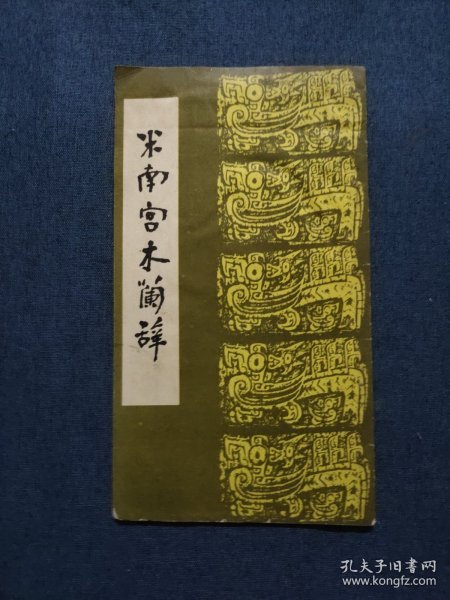 米南宫木蘭辞
孔夫子旧书网
www.kongfz.com